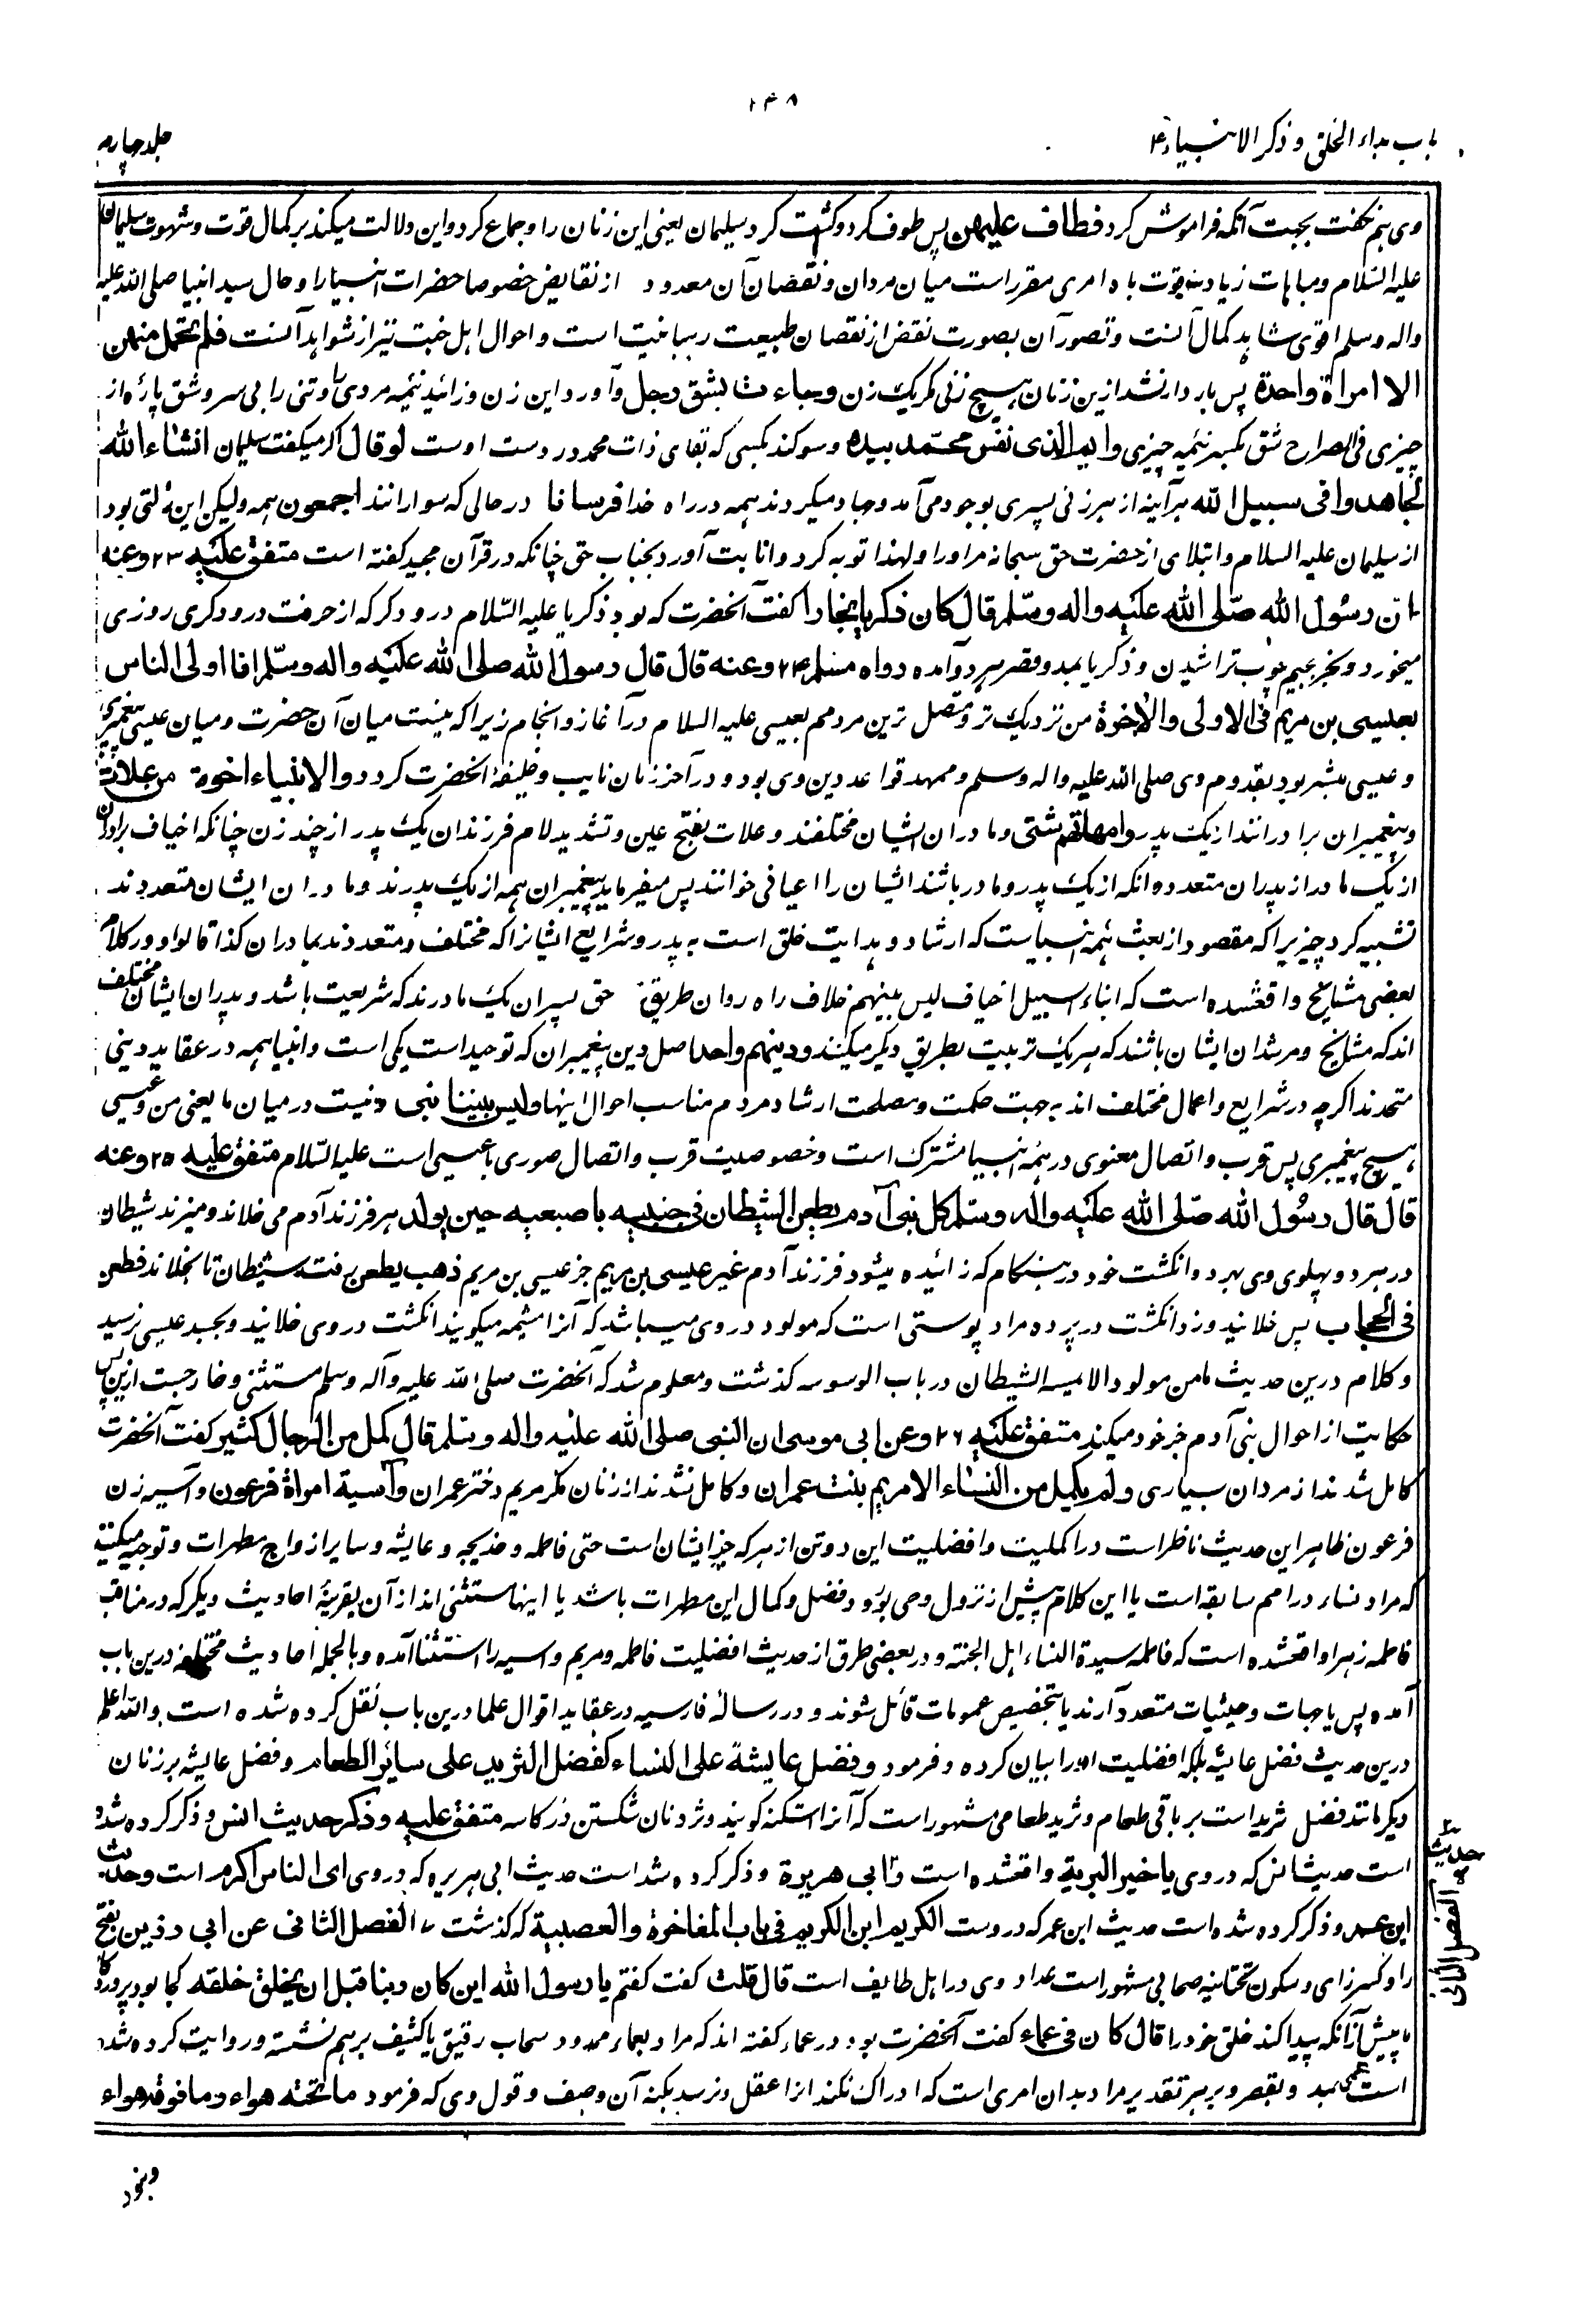 ۱۴۸
باب بداء الخلق و ذکر الانبیاء ع
جلد چهارم
وی هم نگفت بجهت آنکه فراموش کرد فطاف علیهن پس طوف کرد و گشت کرد سلیمان یعنی این زنان را و جماع کرد و این دلالت میکند بر کمال قوت و شهوت سلیمان
علیه السلام و مباهات زیادت بقوت باه امری مقرر است میان مردان و نقصان آن معدود از نقایص خصوصا حضرات انبیا را و حال سید انبیا صلی الله علیه
واله وسلم اقوی شاهد کمال آنست و تصور آن بصورت نقص از نقصان طبیعت است و احوال اهل نیز از شواهد آنست فلم تحمل منهن
الا امراة واحدة پس باردار نشد ازین زنان هیچ زنی مگر یک زن وجاءت بشق رجل و آورد این زن و زائید نیمه مردی را و تنی را بی سر و شق پاره از
چیزی فی الصراح شق بکسر نیمه چیزی وایم الذی نفس محمد بیده و سوگند بکسی که بقای ذات محمد در دست اوست لو قال اگر میگفت سلیمان انشاء الله
لجاهدوا فی سبیل الله هر آینه از هر زنی پسری بوجود می آمد و جهاد میکردند همه در راه خدا فرسانا در حالی که سوارانند اجمعون همه ولیکن این زلتی بود
از سلیمان علیه السلام و ابتلای از حضرت حق سبحانه مر او را و لهذا توبه کرد و انابت آورد بجناب حق چنانکه در قرآن مجید گفته است متفق علیه ۲۳ وعنه
ان رسول الله صلی الله علیه واله وسلم قال کان زکریا نجارا گفت آنحضرت که بود زکریا علیه السلام درودگر که از حرفت درودگری روزی
میخورد و نجر بجیم چوب تراشیدن و زکریا بمد و قصر هر دو آمده رواه مسلم ۲۴ وعنه قال قال رسول الله صلی الله علیه واله وسلم انا اولی الناس
بعیسی بن مریم فی الاولی والآخرة من نزدیک تر و متصل ترین مردمم بعیسی علیه السلام در آغاز و انجام زیرا که نیست میان آن حضرت و میان عیسی پیغمبری
و عیسی مبشر بود بقدوم وی صلی الله علیه واله وسلم و ممهد قواعد دین وی بود و در آخر زمان نایب و خلیفه آنحضرت گردد والانبیاء اخوة من علات
و پیغمبران برادرانند از یک پدر وامهاتهم شتی و مادران ایشان مختلفند و علات بفتح عین و تشدید لام فرزندان یک پدر از چند زن چنانکه اخیاف برادران
از یک مادر از پدران متعدد و آنکه از یک پدر و مادر باشند ایشان را اعیانی خوانند پس میفرماید پیغمبران همه از یک پدرند و مادران ایشان متعددند
تشبیه کرد چیزیرا که مقصود از بعث همه انبیاست که ارشاد و هدایت خلق است به پدر و شرایع ایشانرا که مختلف و متعددند بمادران کذا قالوا و در کلام
بعضی مشایخ واقعشده است که ابناء السبیل اخیاف لیس بینهم خلاف راه روان طریق حق پسران یک مادرند که شریعت باشد و پدران ایشان مختلف
اند که مشایخ و مرشدان ایشان باشند که هر یک تربیت بطریق دیگر میکنند ودینهم واحد اصل دین پیغمبران که توحید است یکی است و انبیا همه در عقاید دینی
متحدند اگرچه در شرایع و اعمال مختلف اند به جهت حکمت و مصلحت ارشاد مردم مناسب احوال اینها ولیس بیننا نبی و نیست در میان ما یعنی من و عیسی
هیچ پیغمبری پس قرب و اتصال معنوی در همه انبیا مشترک است و خصوصیت قرب و اتصال صوری با عیسی است علیه السلام متفق علیه ۲۵ وعنه
قال قال رسول الله صلی الله علیه واله وسلم کل بنی آدم یطعن الشیطان فی جنبیه باصبعیه حین یولد هر فرزند آدم می خلاند و میزند شیطان
در هر دو پهلوی وی بهر دو انگشت خود در هنگام که زائیده میشود فرزند آدم غیر عیسی بن مریم جز عیسی بن مریم ذهب یطعن رفت شیطان تا بخلاند فطعن
فی الحجاب پس خلانید و زد انگشت در پرده مراد پوستی است که مولود در وی میباشد که آنرا مشیمه میگویند انگشت در وی خلانید و بجسد عیسی نرسید
و کلام درین حدیث ما من مولود الا یمسه الشیطان در باب الوسوسه گذشت و معلوم شد که آنحضرت صلی الله علیه وآله وسلم مستثنی و خارجست ازین پس
حکایت از احوال بنی آدم جز خود میکند متفق علیه ۲۶ وعن ابی موسی ان النبی صلی الله علیه واله وسلم قال کمل من الرجال کثیر گفت آنحضرت
کامل شدند از مردان بسیاری ولم یکمل من النساء الا مریم بنت عمران و کامل نشدند از زنان مگر مریم دختر عمران وآسیة امراة فرعون و آسیه زن
فرعون ظاهر این حدیث ناظر است در اکملیت و افضلیت این دو تن از هر که جز ایشان است حتی فاطمه و خدیجه و عایشه و سایر ازواج مطهرات و توجیه میکنند
که مراد نساء در امم سابقه است یا این کلام پیش از نزول وحی بود و فضل و کمال این مطهرات باشد یا اینها مستثنی اند از آن بقرینهٔ احادیث دیگر که در مناقب
فاطمه زهرا واقعشده است که فاطمه سیدة النساء اهل الجنته و در بعضی طرق از حدیث افضلیت فاطمه و مریم و اسیه را استثنا آمده و بالجمله احادیث مختلفه درین باب
آمده پس یا جهات و حیثیات متعدد آرند یا بتخصیص عمومات قائل شوند و در رسالهٔ فارسیه در عقاید اقوال علما درین باب نقل کرده شده است والله اعلم
درین حدیث فضل عائشه بلکه افضلیت او را بیان کرده و فرمود وفضل عایشة علی النساء کفضل الثرید علی سائر الطعام و فضل عایشه بر زنان
دیگر مانند فضل ثرید است بر باقی طعام و ثرید طعامی مشهور است که آنرا اشکنه گویند و ثرد نان شکستن در کاسه متفق علیه وذکر حدیث انس و ذکر کرده شده
است حدیث انس که در وی یا خیر البریة واقعشده است وابی هریرة و ذکر کرده شد است حدیث ابی هریره که در وی ای الناس اکرم است وحدیث
ابن عمر و ذکر کرده شده است حدیث ابن عمر که در وست الکریم ابن الکریم فی باب المفاخرة والعصبیة که گذشت الفصل الثانی عن ابی رزین بفتح
را و کسر زای و سکون تحتانیه صحابی مشهور است عداد وی در اهل طایف است قال قلت گفت گفتم یا رسول الله این کان ربنا قبل ان یخلق خلقه کجا بود پروردگار
ما پیش از آنکه پیدا کند خلق خود را قال کان فی عماء گفت آنحضرت بود در عماء گفته اند که مراد بعماء ممدود سحاب رقیق یا کثیف بر هم نشسته و روایت کرده شده
است عمی بمد و بقصر و بر هر تقدیر مراد بدان امری است که ادراک نکند انرا عقل و نرسد بکنه آن وصف و قول وی که فرمود ما تحته هواء وما فوقه هواء
حدیث
الفصل الثانی